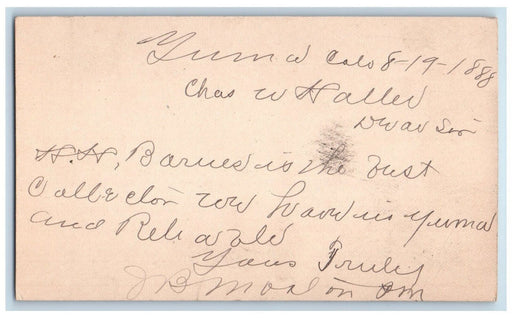 Yuma Colo 8-19-1888
Chas W Haller
Dear Sir
H.H. Barnes is the Best
Collector we have in Yuma
and Reliable
Yours Truly
JB